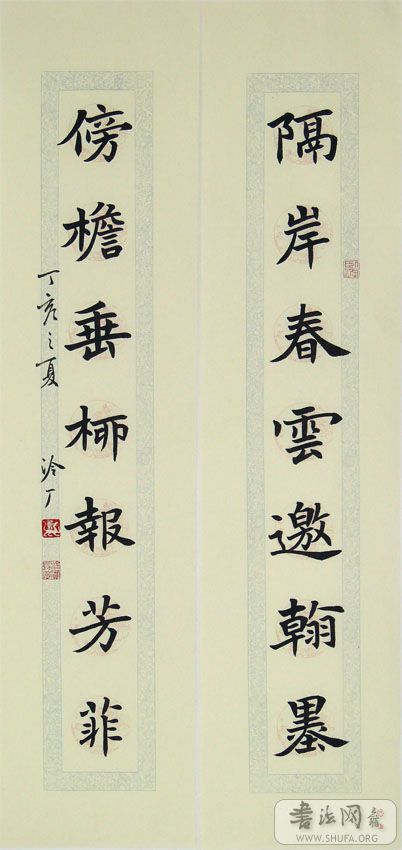 隔岸春雲邀翰墨
傍檐垂柳報芳菲
丁亥之夏 冷丁
書法网
WWW.SHUFA.ORG